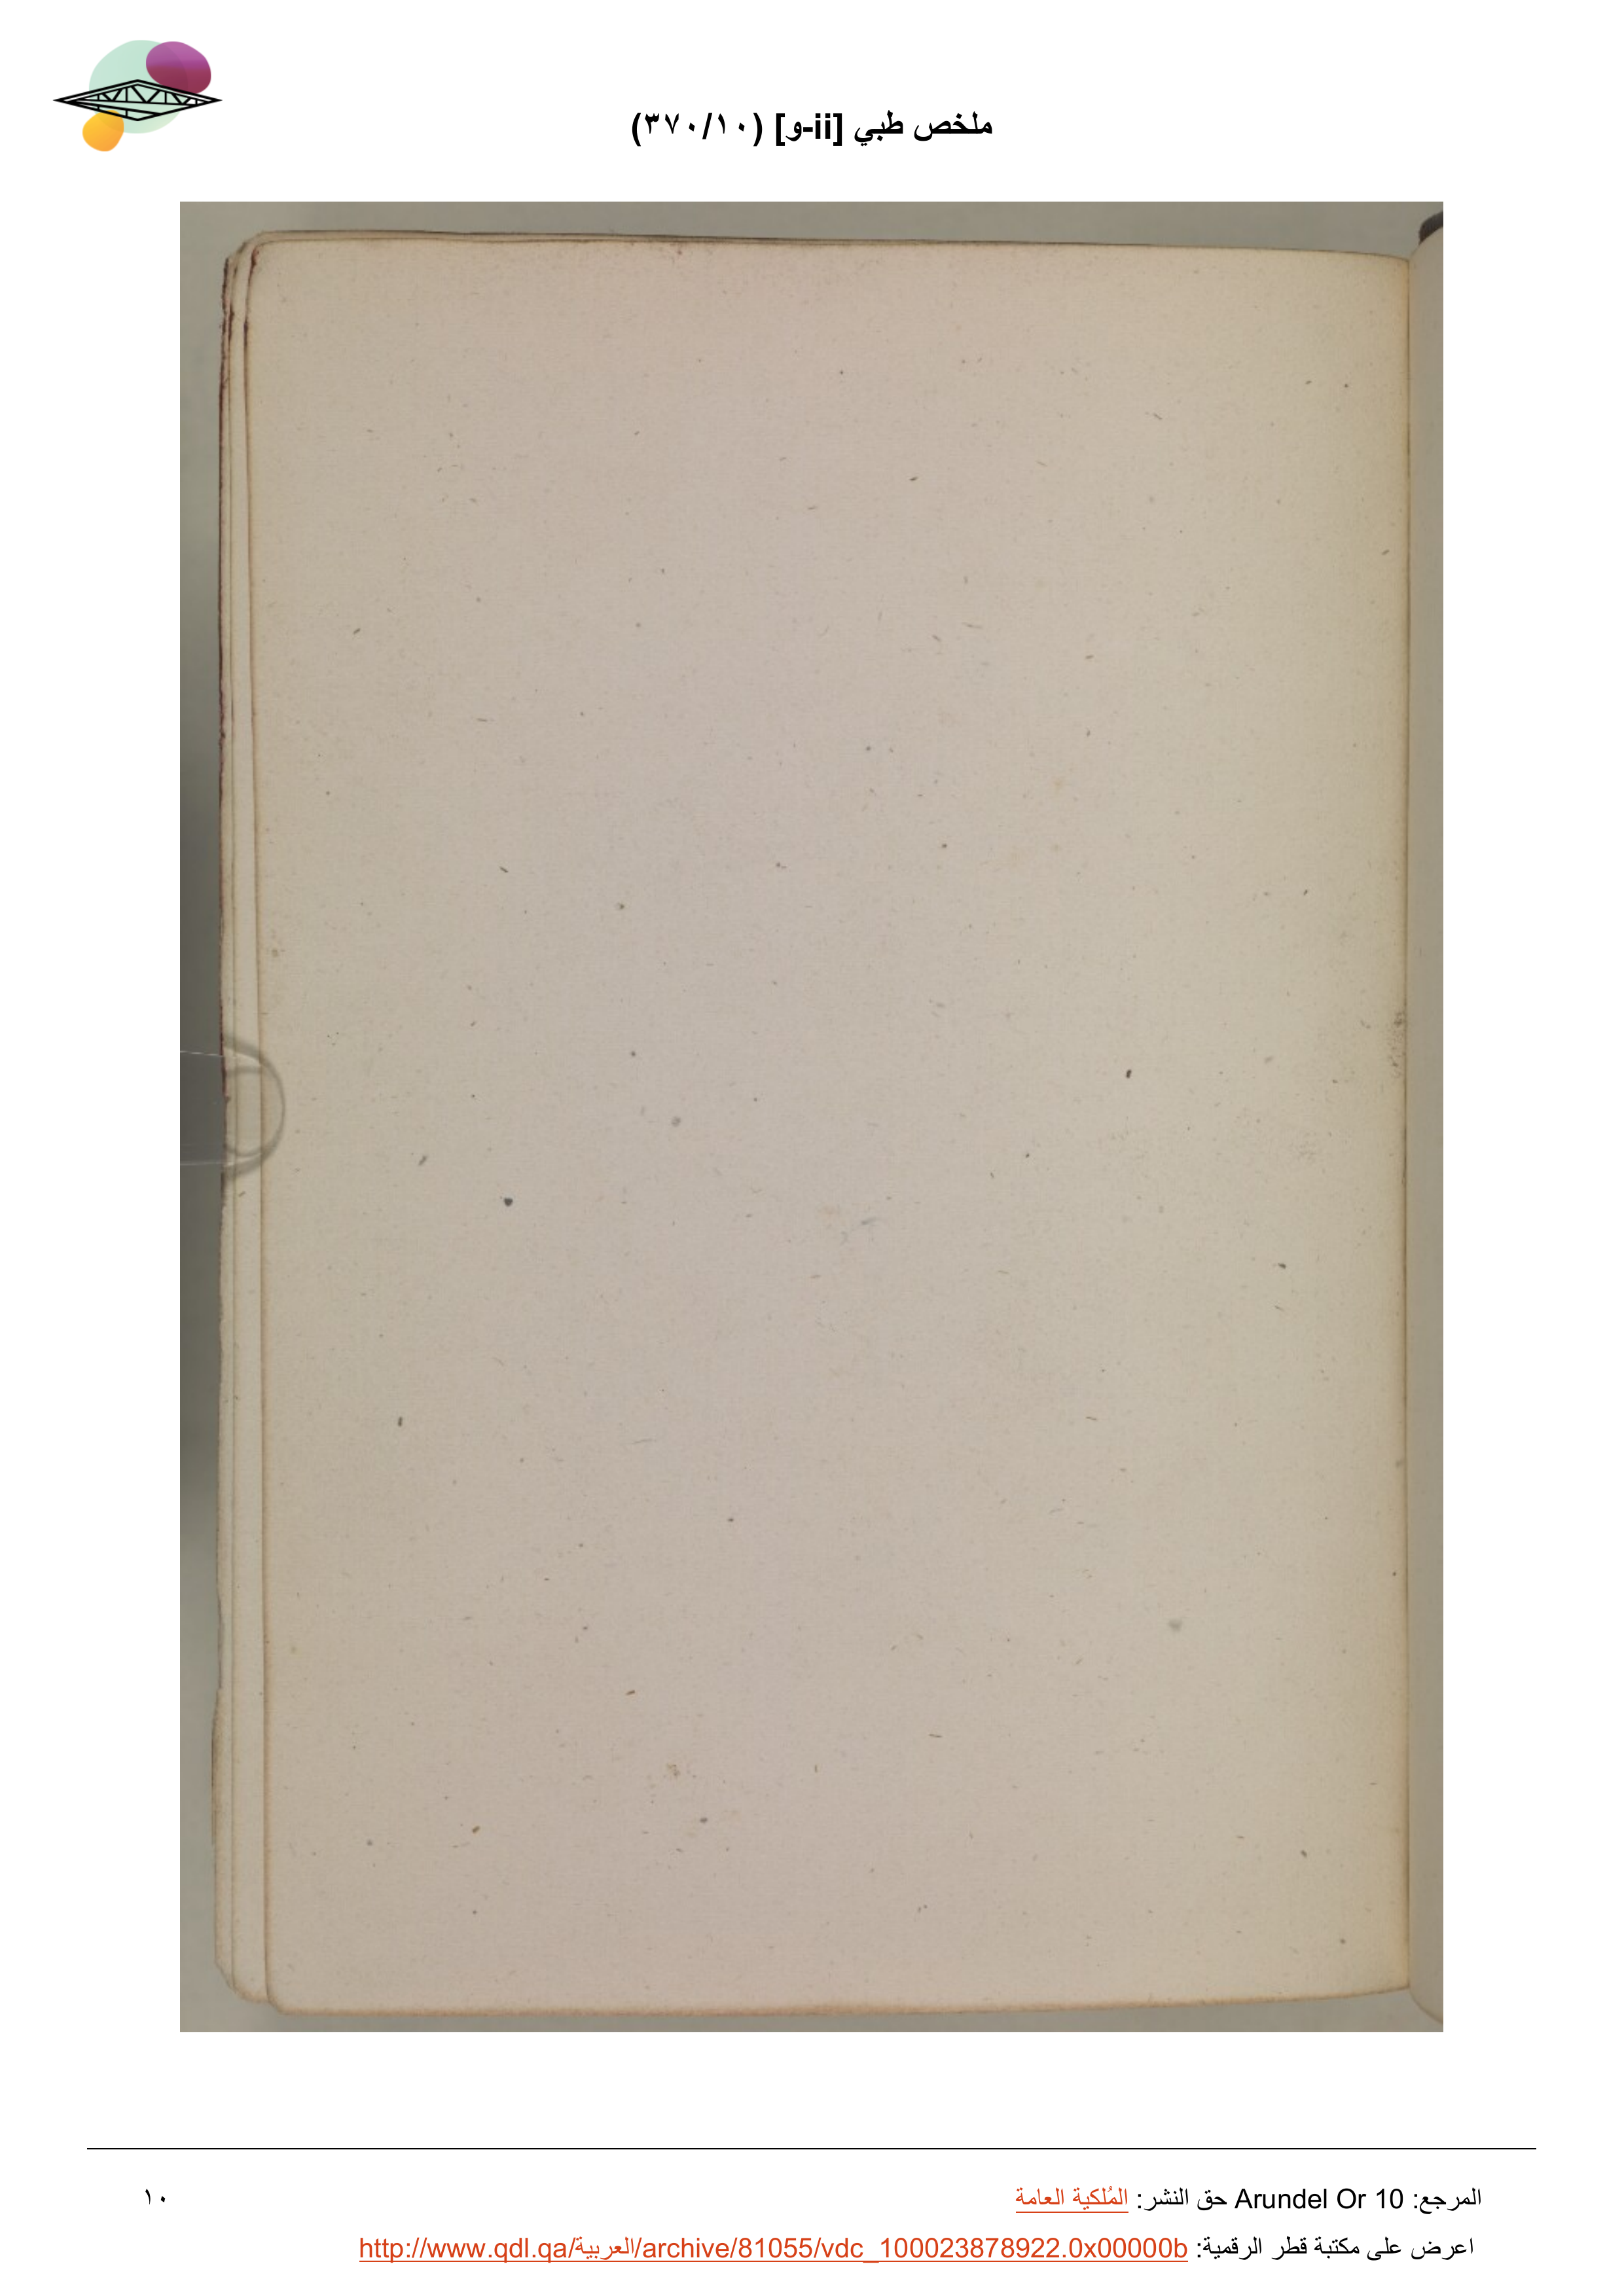 ملخص طبي [ii-و] (٣٧٠/١٠)
المرجع: Arundel Or 10 حق النشر: المُلكية العامة
١٠
اعرض على مكتبة قطر الرقمية: http://www.qdl.qa/العربية/archive/81055/vdc_100023878922.0x00000b